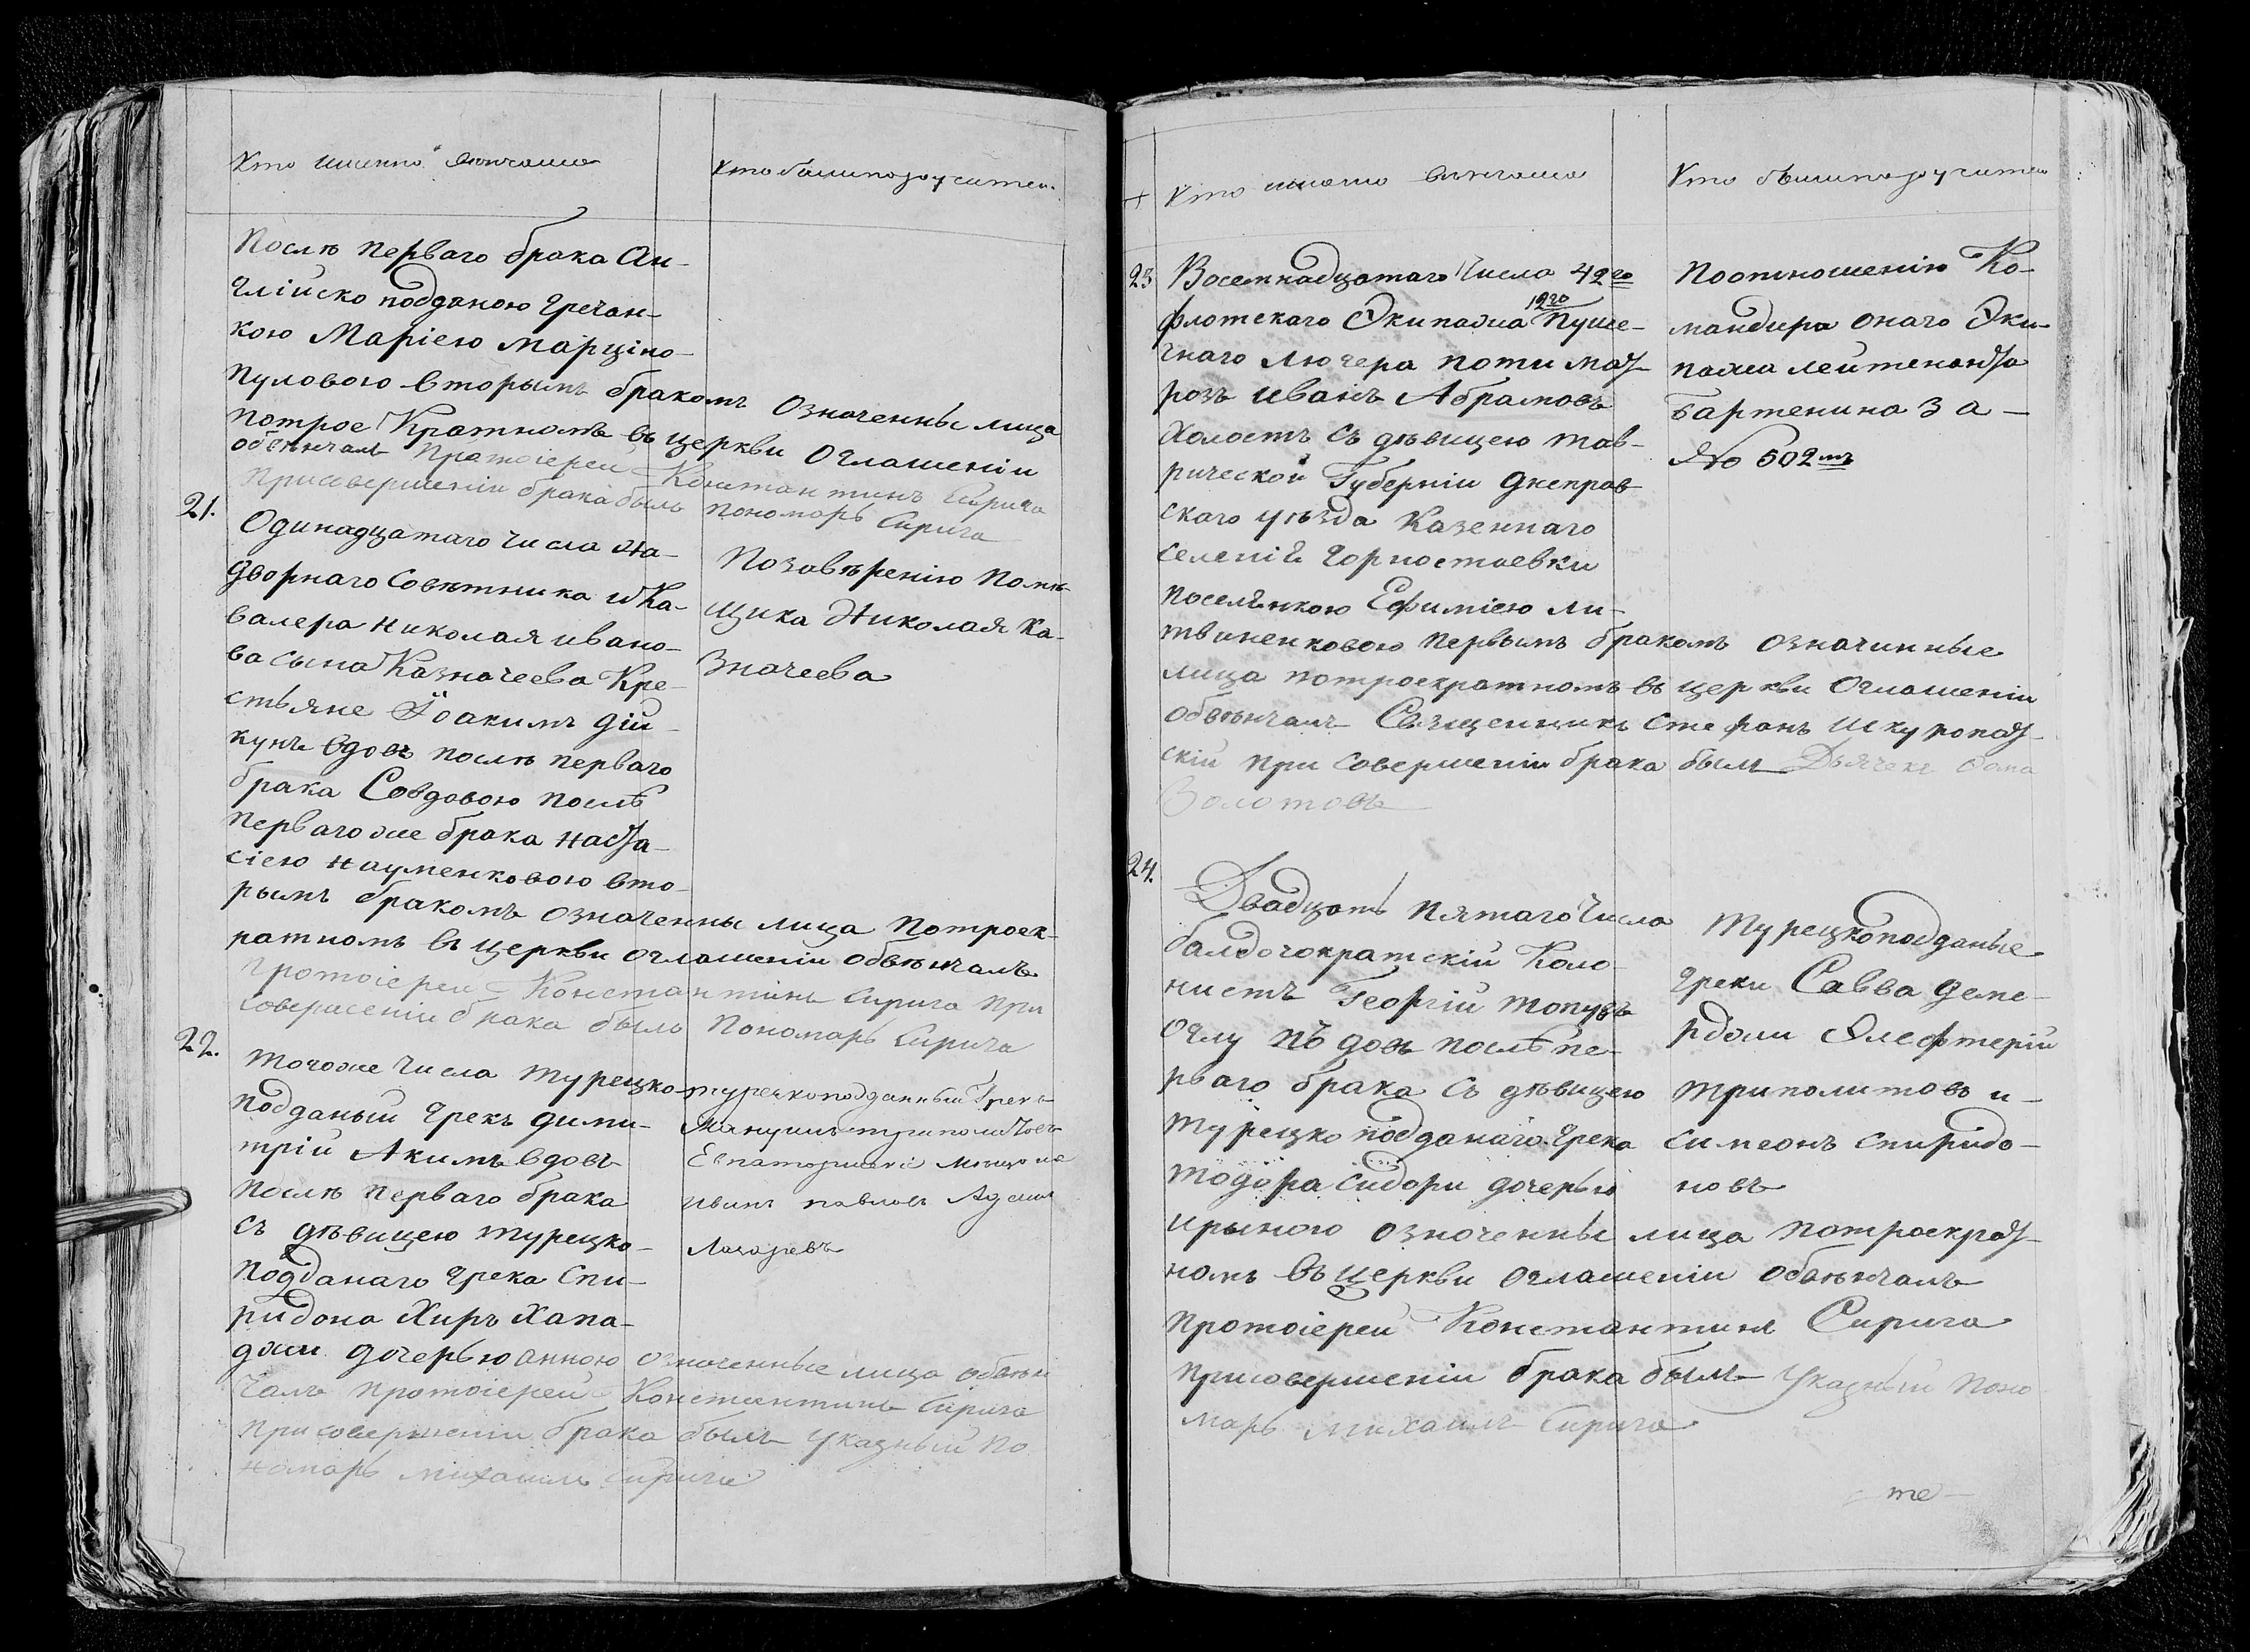 Кто именно венчаны
Кто были поручители
Послѣ перваго брака Ан-
глійско подданою гречан-
кою Маріею Марціно-
пуловою вторымъ бракомъ означенны лица
потрое Кратномъ въ церкви оглашеніи
обвѣнчалъ Протоіерей Константинъ Сирига
Присовершеніи брака былъ пономарь Сирига
21.
Одинадцатаго числа На-
дворнаго Совѣтника и Ка-
валера Николая ивано-
ва сына Казначеева Кре-
стьяне Іоакимъ дій-
кунъ вдовъ послѣ перваго
брака Совдовою послѣ
перваго же брака наста-
сіею Науменковою вто-
рымъ бракомъ означенны лица Потроек-
ратномъ въ церкви оглашеніи обвѣнчалъ
Протоіереи Константинъ Сирига При
совершеніи брака былъ Пономарь Сирига
Позавѣренію Помѣ-
щика Николая Ка-
значеева
22.
Тогоже числа турецко-
подданый грекъ дими-
трій Акимъ вдовъ
послѣ перваго брака
съ дѣвицею турецко-
подданаго грека Спи-
ридона Хиръ Хапа-
джи дочерью анною означенные лица обвѣн
чалъ протоіерей Константинъ Сирига
присовершеніи брака былъ указный по
номарь михаилъ сирига
турецкоподданный Грекъ
Мануилъ триполитовъ
Евпаторискіе
иванъ павловъ
Лазаревъ
Кто именно вѣнчаны
Кто были поручители
23
Восемнадцатаго числа 42го
флотскаго Экипажа 19го Пуше-
чнаго люгера поти мат-
розъ иванъ Абрамовъ
холостъ съ дѣвицею тав-
рической Губерніи днепров-
скаго уѣзда Казеннаго
селенія Горностаевки
поселянкою Ефиміею ли-
твиненковою первымъ бракомъ означинные
лица потроекратномъ въ церкви оглашеніи
обвѣнчалъ Священникъ стефанъ шкуропат-
скій при совершеніи брака былъ Дьячекъ
Золотовъ
Поотношенію Ко-
мандира онаго Эки-
пажа лейтенанта
Бартенина за —
№ 602мъ
24.
Двадцать пятаго числа
балдогократскій Коло-
нистъ Георгій топузъ
оглу въ довъ послѣ пе-
рваго брака съ дѣвицею
турецко подданаго грека
тодора сидори дочерью
ириною означенны лица потроекрат-
номъ въ церкви оглашеніи обвѣнчалъ
протоіереи Константинъ Сирига
присовершеніи брака былъ указный поно
марь михаилъ Сирига
Турецкоподданые
греки Савва деме-
рджи Элефтерій
триполитовъ и-
симеонъ спиридо-
новъ
те-